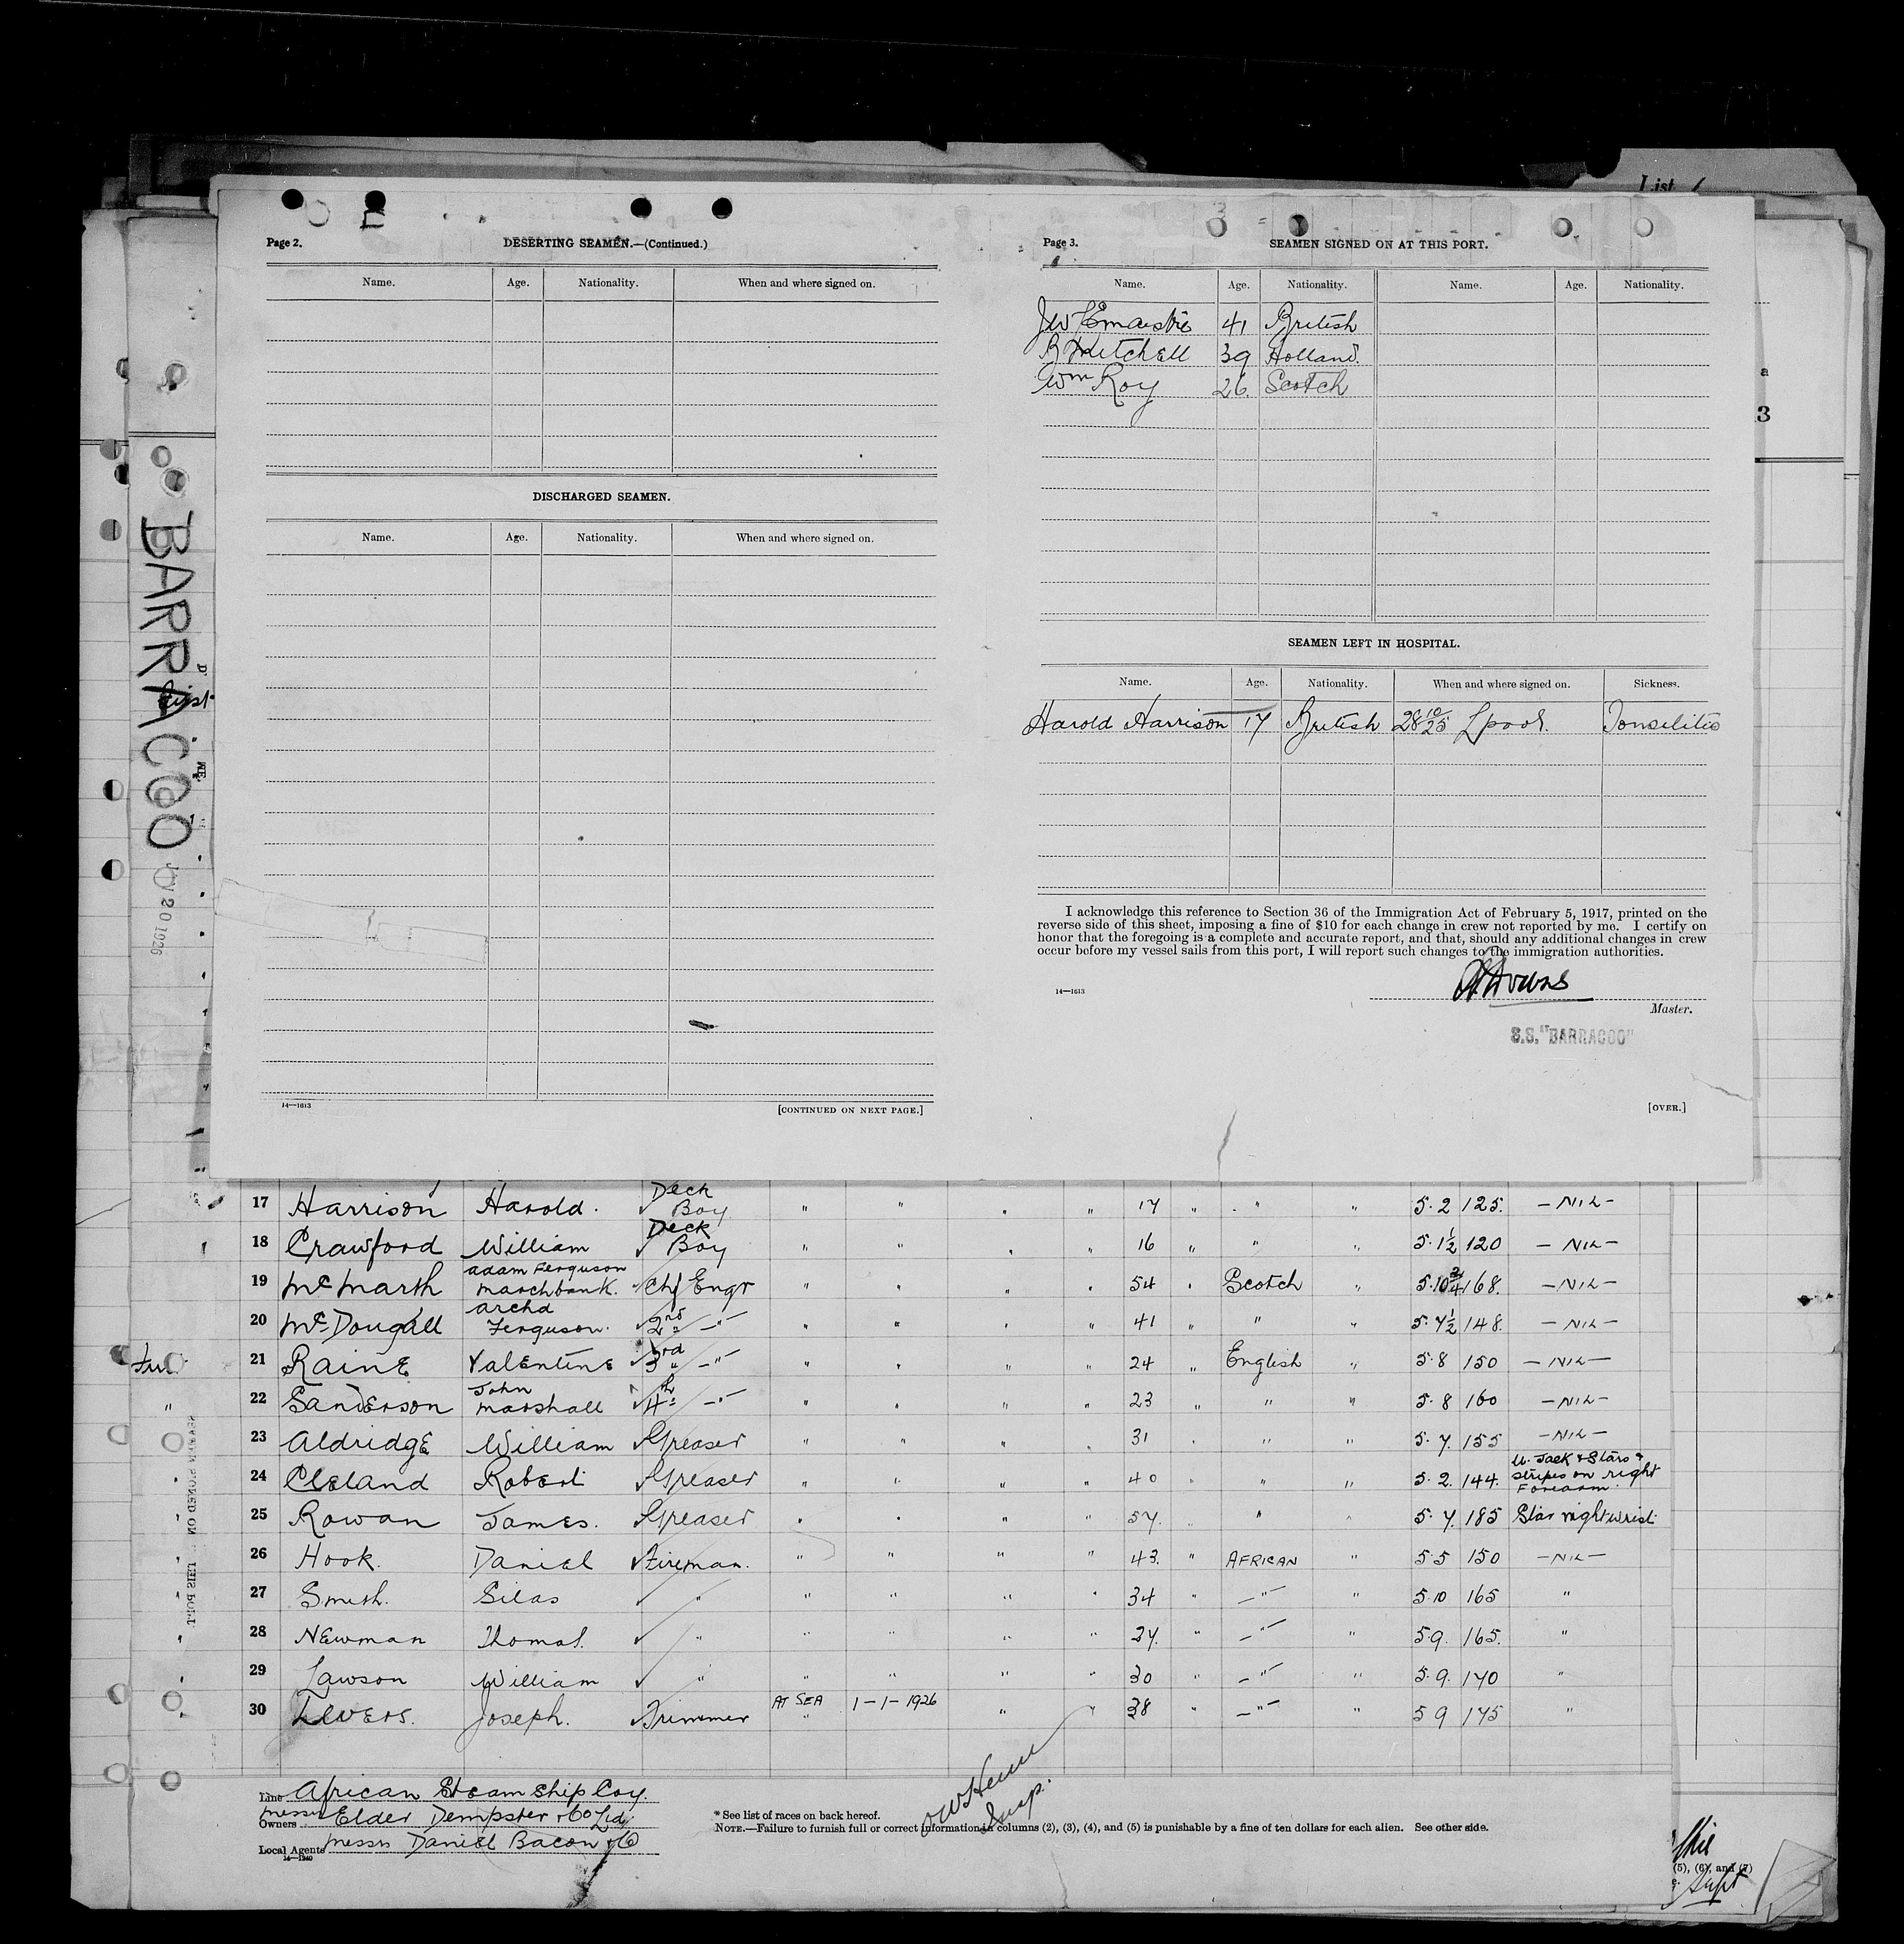 List 1
Page 2.
DESERTING SEAMEN.—(Continued.)
Name. Age. Nationality. When and where signed on.
DISCHARGED SEAMEN.
Name. Age. Nationality. When and where signed on.
14—1613
[CONTINUED ON NEXT PAGE.]
Page 3.
SEAMEN SIGNED ON AT THIS PORT.
Name. Age. Nationality. Name. Age. Nationality.
41 British
R Mitchell 39 Holland.
Wm Roy 26. Scotch
SEAMEN LEFT IN HOSPITAL.
Name. Age. Nationality. When and where signed on. Sickness.
Harold Harrison 17 British 28 10/25 Lpool. Tonselitis
I acknowledge this reference to Section 36 of the Immigration Act of February 5, 1917, printed on the
reverse side of this sheet, imposing a fine of $10 for each change in crew not reported by me. I certify on
honor that the foregoing is a complete and accurate report, and that, should any additional changes in crew
occur before my vessel sails from this port, I will report such changes to the immigration authorities.
14—1613
Master.
S.S. "BARRACOO"
[OVER.]
BARRACOO
20 1926
3
17 Harrison Harold. Deck Boy " " " " 17 " " " 5.2 125. — NIL —
18 Crawford William Deck Boy " " " " 16 " " " 5.1½ 120 — NIL —
19 McMarth Adam Ferguson Marchbank. Chf Engr " " " " 54 " Scotch " 5.10¾ 168. — NIL —
20 McDougall Archd Ferguson. 2nd " — " " " " " 41 " " " 5.7½ 148. — NIL —
21 Raine Valentine 3rd " — " " " " " 24 " English " 5.8 150 — NIL —
22 Sanderson John Marshall 4th " — " " " " " 23 " " " 5.8 160 — NIL —
23 Aldridge William Greaser " " " " 31 " " " 5.7. 155 — NIL —
24 Cleland Robert Greaser " " " " 40 " " " 5.2. 144. U. Jack & Stars & Stripes on right Forearm.
25 Rowan James. Greaser " " " " 57. " " " 5.7. 185 Star right wrist.
26 Hook. Daniel Fireman. " " " " 43. " AFRICAN " 5.5 150 — NIL —
27 Smith. Silas " " " " " 34 " — " — " 5.10 165 "
28 Newman Thomas. " " " " " " — " — " 5.9. 165. "
29 Lawson William " " " " " 30 " — " — " 5.9. 170 "
30 Joseph. Trimmer AT SEA 1-1-1926 " " 38 " — " — " 5 9 175 "
Line African Steam Ship Coy.
Owners Messrs Elder Dempster & Co Ltd.
Local Agents Messrs Daniel Bacon & Co
14—1240
* See list of races on back hereof.
NOTE.—Failure to furnish full or correct information in columns (2), (3), (4), and (5) is punishable by a fine of ten dollars for each alien. See other side.
Insp.
(5), (6), and (7)